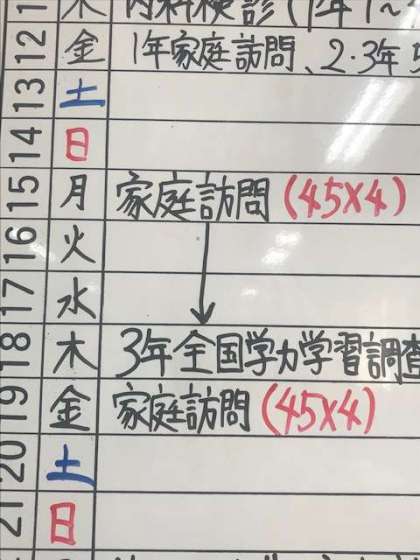 11 木 内科検診(1年1~
12 金 1年家庭訪問、2・3年
13 土
14 日
15 月 家庭訪問(45×4)
16 火
17 水
18 木 3年全国学力学習調査
19 金 家庭訪問(45×4)
20 土
21 日